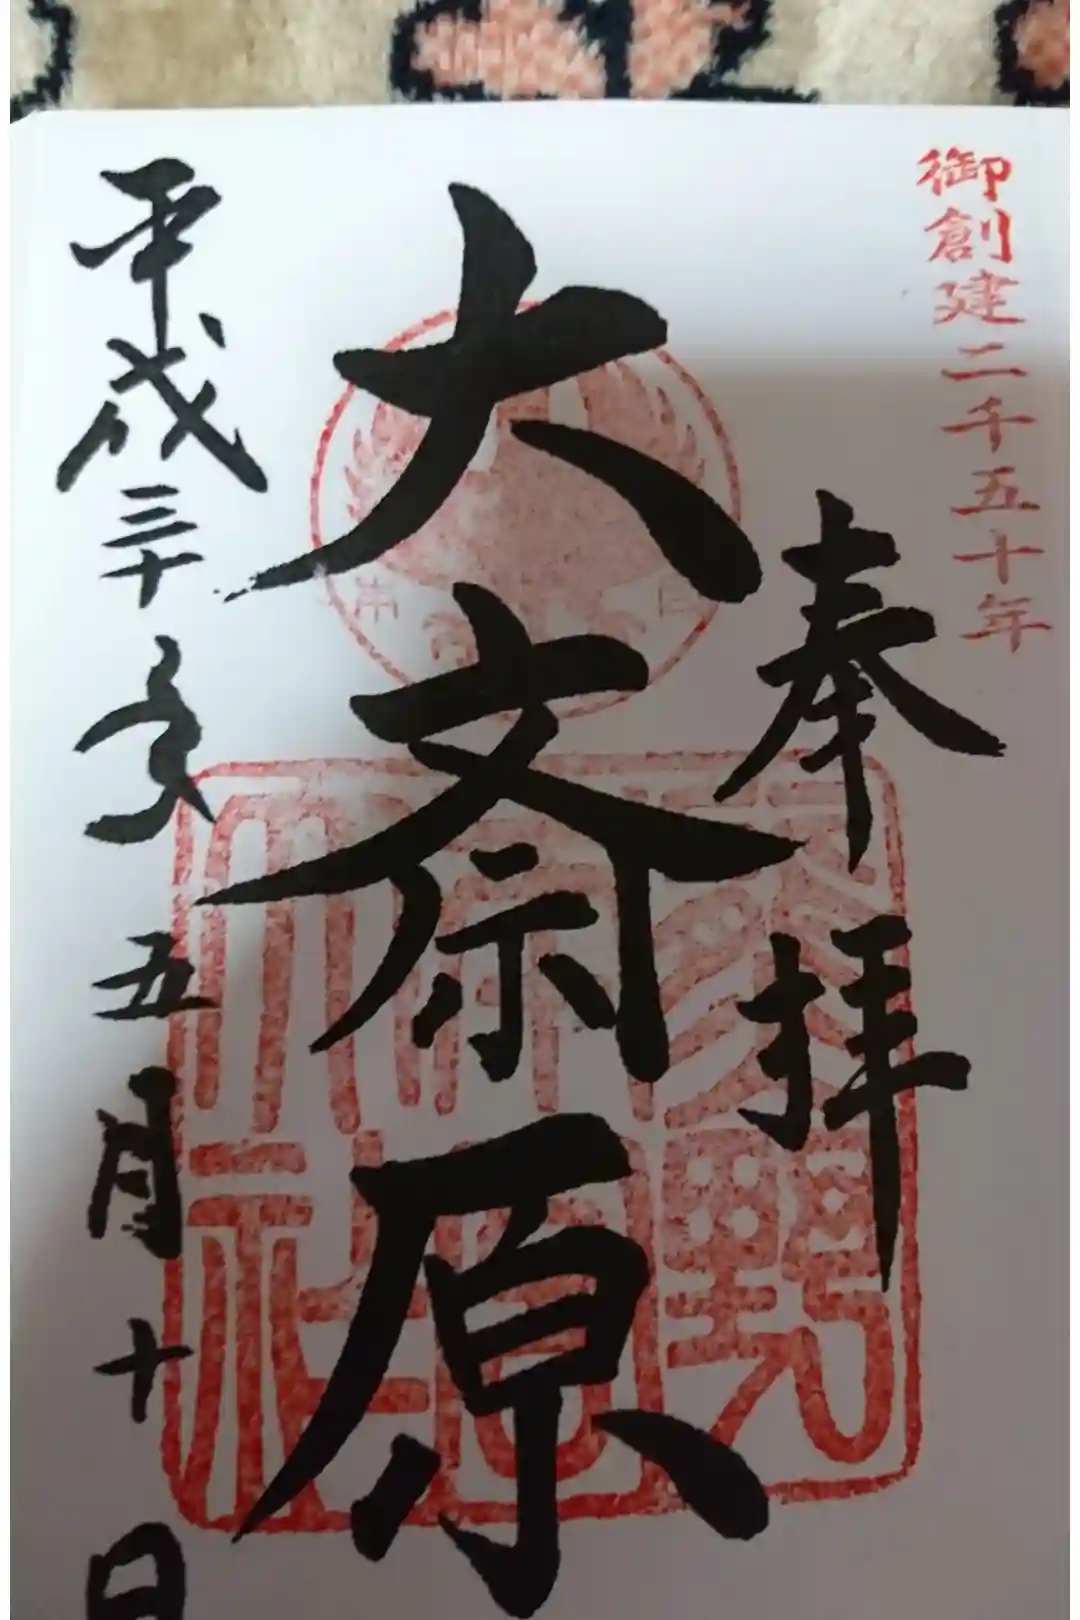 御創建二千五十年
奉拝
大斎原
平成三十年五月十日